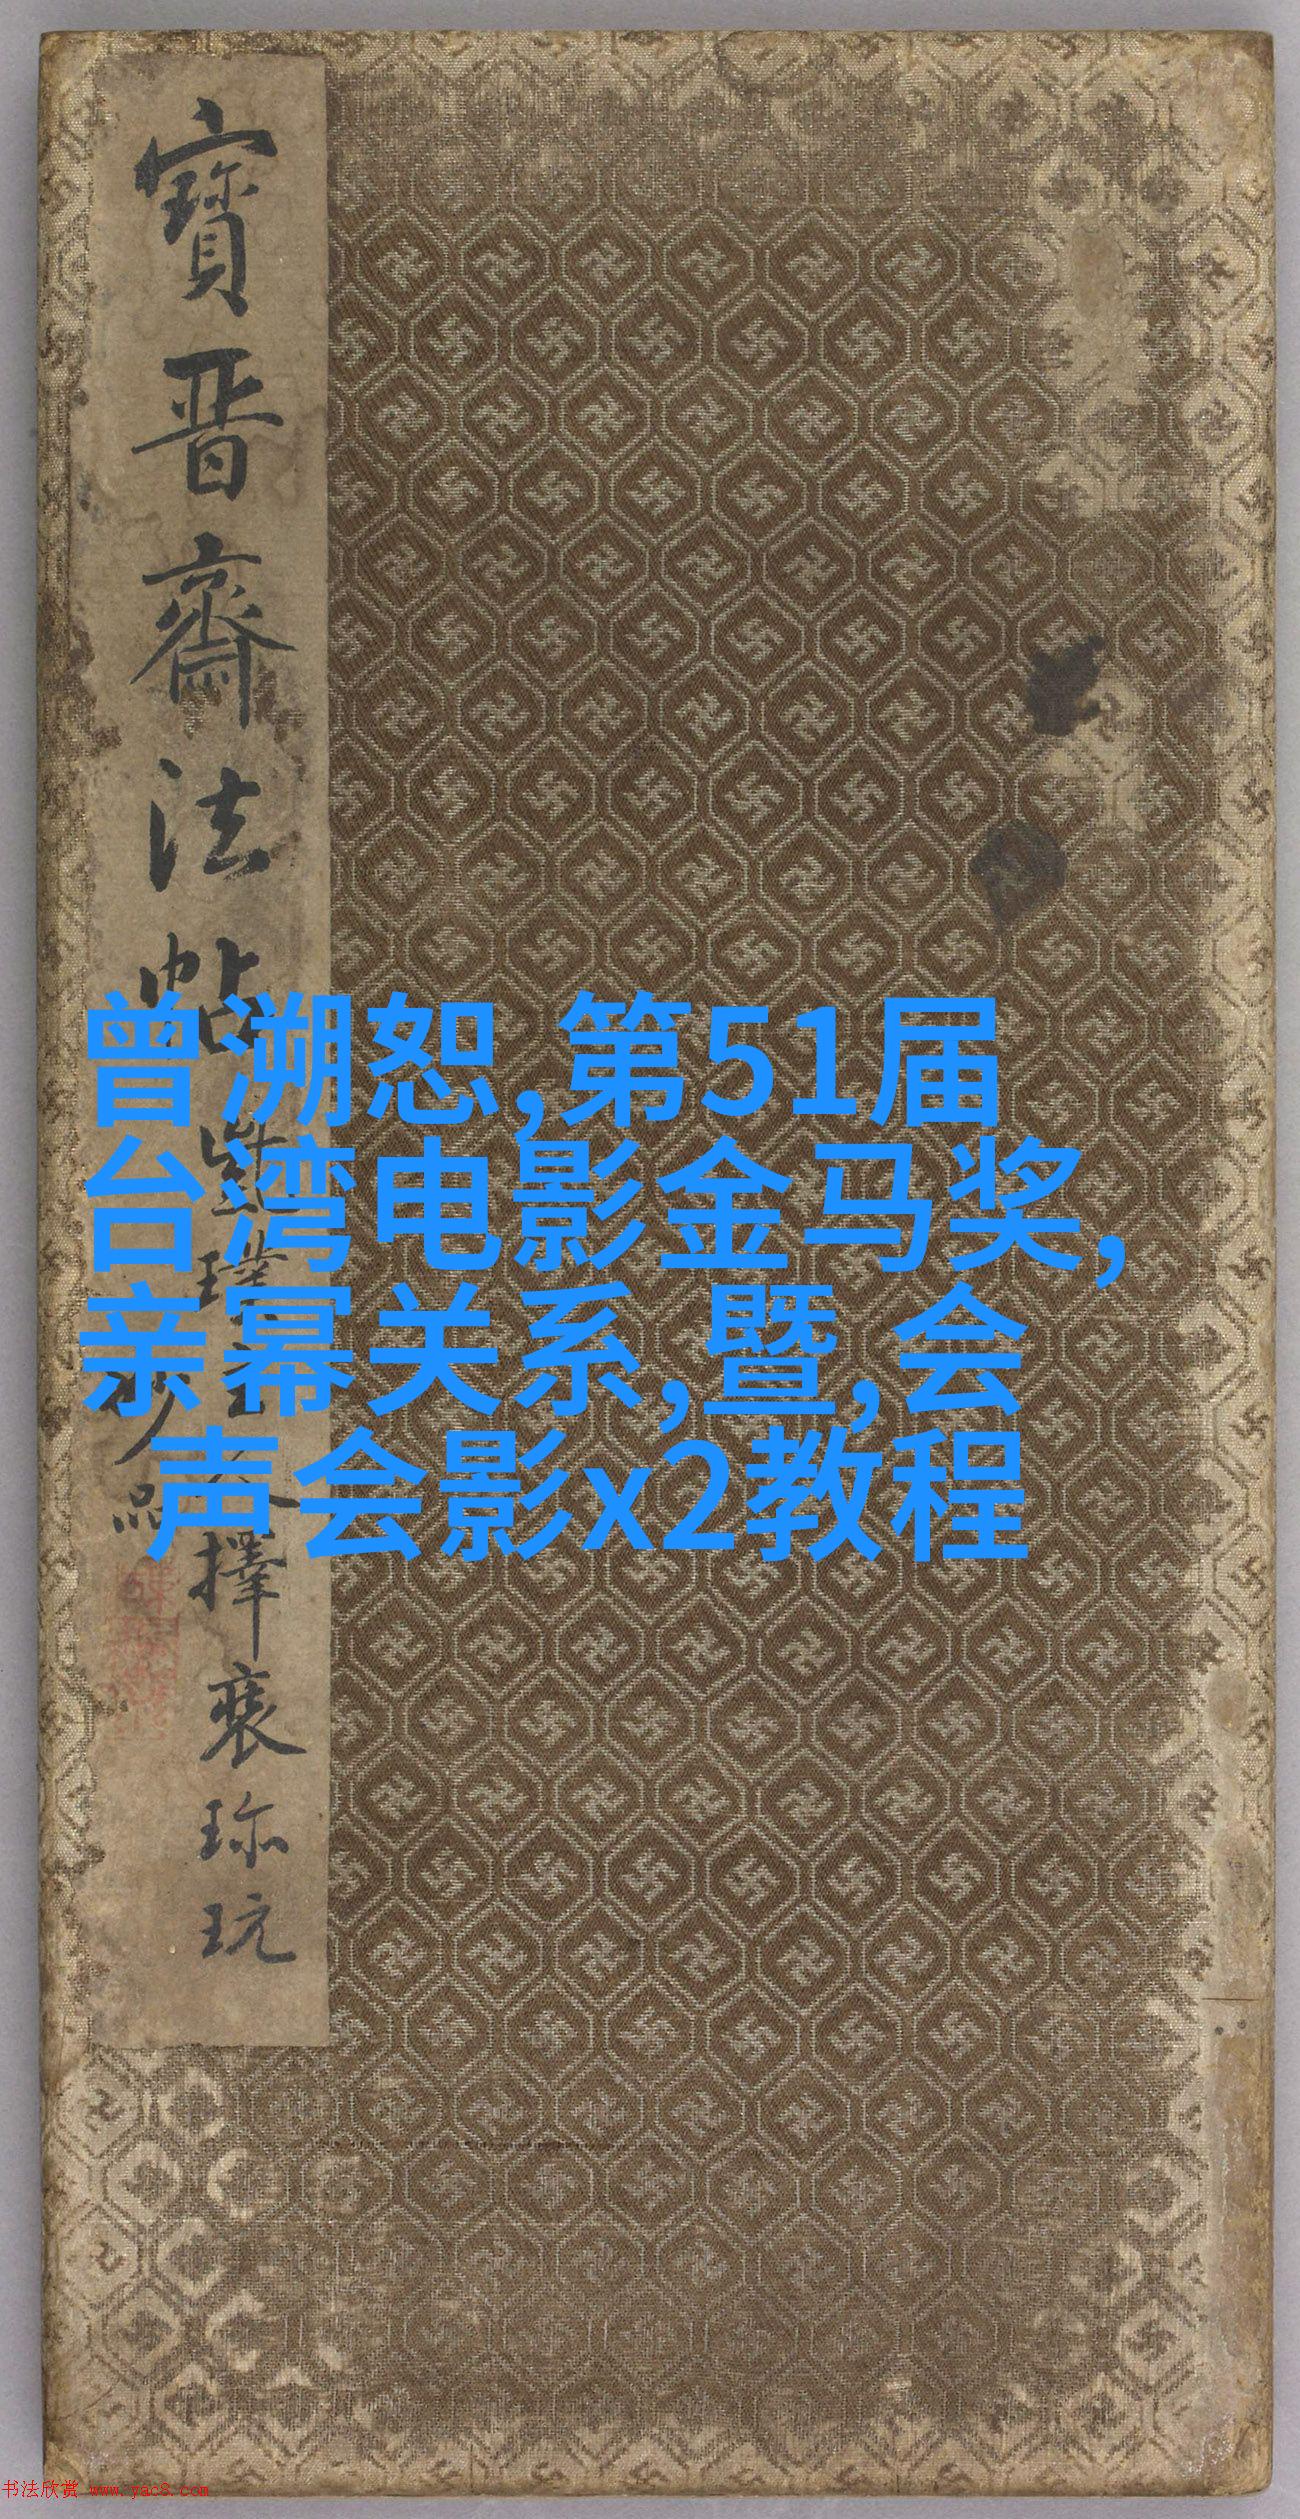 寶晋齋法帖
擇裒珎玩
曾溯恕,第51届
台湾电影金马奖,
亲幂关系,暨,会
声会影x2教程
书法欣赏 www.yac8.com